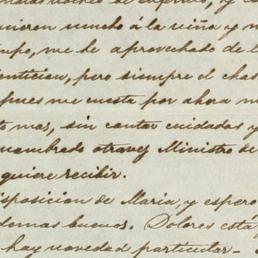 quieren mucho á la niña y m
upo, me he aprovechado de l
pero siempre el chas
pues me cuesta por ahora m
te mas, sin contar cuidados y
nombrado otravez Ministro de
quiere recibir.
isposicion de Maria, y espero
demas buenos. Dolores está
hay novedad particular-